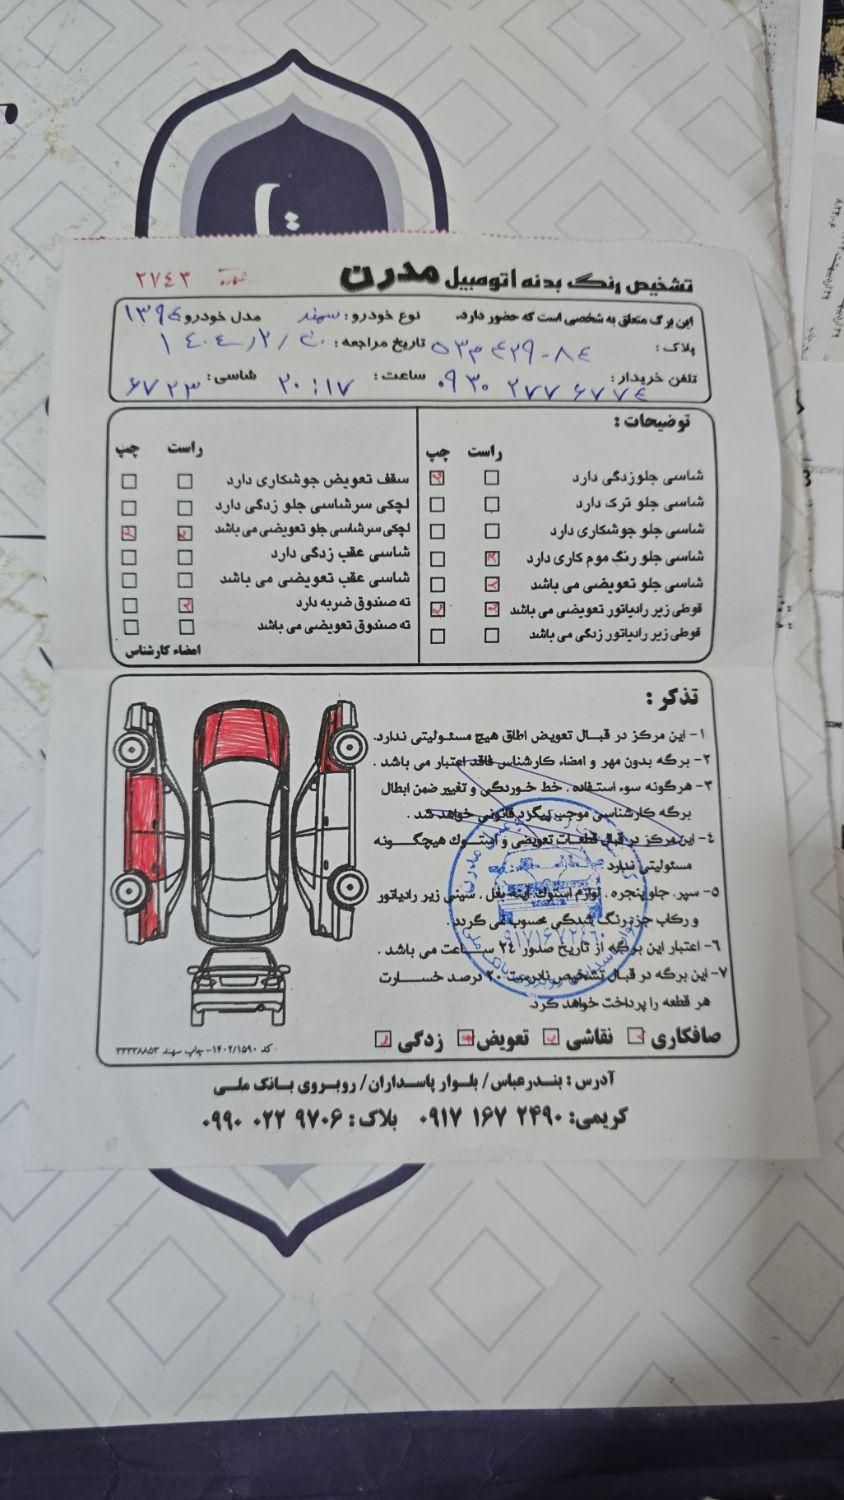 تشخیص رنگ بدنه اتومبیل مدرن
شماره ۲۷۴۳
این برگ متعلق به شخصی است که حضور دارد. نوع خودرو: سهند مدل خودرو: ۱۳۹۴
پلاک: ۵۳م۴۲۹-۸۴ تاریخ مراجعه: ۱۴۰۴/۲/۲۰
تلفن خریدار: ۰۹۳۰ ۲۷۷ ۶۷۷۴ ساعت: ۲۰:۱۷ شاسی: ۶۷۲۳
توضیحات:
راست چپ
شاسی جلوزدگی دارد
شاسی جلو ترک دارد
شاسی جلو جوشکاری دارد
شاسی جلو رنگ موم کاری دارد
شاسی جلو تعویضی می باشد
قوطی زیر رادیاتور تعویضی می باشد
قوطی زیر رادیاتور زدگی می باشد
راست چپ
سقف تعویض جوشکاری دارد
لچکی سرشاسی جلو زدگی دارد
لچکی سرشاسی جلو تعویضی می باشد
شاسی عقب زدگی دارد
شاسی عقب تعویضی می باشد
ته صندوق ضربه دارد
ته صندوق تعویضی می باشد
امضاء کارشناس
تذکر:
۱- این مرکز در قبال تعویض اطاق هیچ مسئولیتی ندارد.
۲- برگه بدون مهر و امضاء کارشناس فاقد اعتبار می باشد.
۳- هرگونه سوء استفاده، خط خوردگی و تغییر ضمن ابطال
برگه کارشناسی موجب پیگرد قانونی خواهد شد.
۴- این مرکز در قبال قطعات تعویضی و استوک هیچگونه
مسئولیتی ندارد
۵- سپر، جلو پنجره، لوازم استوک، آینه بغل، سینی زیر رادیاتور
و رکاب جزء رنگ شدگی محسوب می گردد.
۶- اعتبار این برگه از تاریخ صدور ۲۴ ساعت می باشد.
۷- این برگه در قبال تشخیص نادرست ۲۰ درصد خسارت
هر قطعه را پرداخت خواهد کرد.
صافکاری نقاشی تعویض زدگی
کد ۱۴۰۲/۱۵۹۰-چاپ سهند ۳۳۳۳۸۸۵۳
آدرس: بندرعباس/ بلوار پاسداران/ روبروی بانک ملی
کریمی: ۰۹۱۷ ۱۶۷ ۲۴۹۰ پلاک: ۰۹۹۰ ۰۲۲ ۹۷۰۶